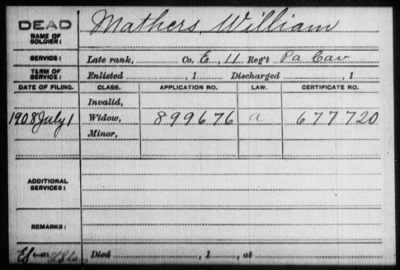 DEAD Mathers, William
NAME OF SOLDIER:
SERVICE: Late rank, Co. E, 11 Reg't Pa Cav
TERM OF SERVICE: Enlisted , 1 Discharged , 1
DATE OF FILING. CLASS. APPLICATION NO. LAW. CERTIFICATE NO.
Invalid,
1908 July 1 Widow, 899676 a 677720
Minor,
ADDITIONAL SERVICES:
REMARKS:
Died , 1 , at